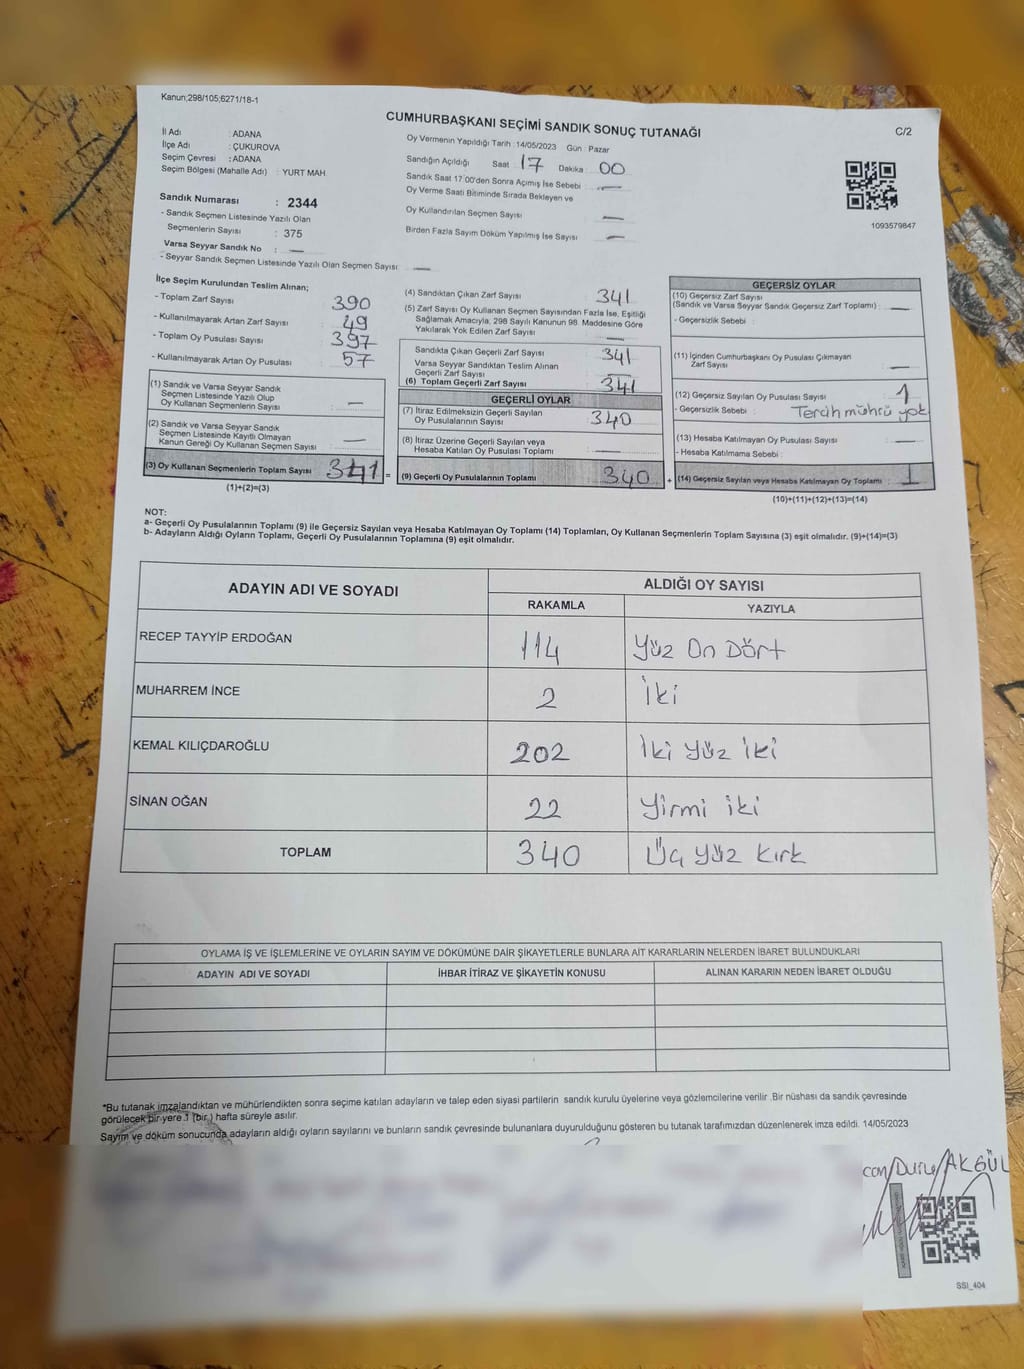 Kanun;298/105;6271/18-1
CUMHURBAŞKANI SEÇİMİ SANDIK SONUÇ TUTANAĞI
C/2
İl Adı : ADANA
İlçe Adı : ÇUKUROVA
Seçim Çevresi : ADANA
Seçim Bölgesi (Mahalle Adı) : YURT MAH
Oy Vermenin Yapıldığı Tarih :14/05/2023 Gün : Pazar
Sandığın Açıldığı Saat : 17 Dakika : 00
Sandık Saat 17:00'den Sonra Açımış İse Sebebi : —
Oy Verme Saati Bitiminde Sırada Bekleyen ve
Oy Kullandırılan Seçmen Sayısı —
Birden Fazla Sayım Döküm Yapılmış İse Sayısı —
1093579847
Sandık Numarası : 2344
- Sandık Seçmen Listesinde Yazılı Olan
Seçmenlerin Sayısı : 375
Varsa Seyyar Sandık No : —
- Seyyar Sandık Seçmen Listesinde Yazılı Olan Seçmen Sayısı: —
İlçe Seçim Kurulundan Teslim Alınan;
- Toplam Zarf Sayısı 390
- Kullanılmayarak Artan Zarf Sayısı : 49
- Toplam Oy Pusulası Sayısı : 397
- Kullanılmayarak Artan Oy Pusulası : 57
(1) Sandık ve Varsa Seyyar Sandık
Seçmen Listesinde Yazılı Olup
Oy Kullanan Seçmenlerin Sayısı : —
(2) Sandık ve Varsa Seyyar Sandık
Seçmen Listesinde Kayıtlı Olmayan
Kanun Gereği Oy Kullanan Seçmen Sayısı : —
(3) Oy Kullanan Seçmenlerin Toplam Sayısı : 341 =
(1)+(2)=(3)
(4) Sandıktan Çıkan Zarf Sayısı : 341
(5) Zarf Sayısı Oy Kullanan Seçmen Sayısından Fazla İse, Eşitliği
Sağlamak Amacıyla, 298 Sayılı Kanunun 98. Maddesine Göre
Yakılarak Yok Edilen Zarf Sayısı : —
Sandıkta Çıkan Geçerli Zarf Sayısı : 341
Varsa Seyyar Sandıktan Teslim Alınan
Geçerli Zarf Sayısı : —
(6) Toplam Geçerli Zarf Sayısı : 341
GEÇERLİ OYLAR
(7) İtiraz Edilmeksizin Geçerli Sayılan
Oy Pusulasının Sayısı : 340
(8) İtiraz Üzerine Geçerli Sayılan veya
Hesaba Katılan Oy Pusulası Toplamı : —
(9) Geçerli Oy Pusulalarının Toplamı : 340 +
GEÇERSİZ OYLAR
(10) Geçersiz Zarf Sayısı
(Sandık ve Varsa Seyyar Sandık Geçersiz Zarf Toplamı) : —
- Geçersizlik Sebebi :
(11) İçinden Cumhurbaşkanı Oy Pusulası Çıkmayan
Zarf Sayısı : —
(12) Geçersiz Sayılan Oy Pusulası Sayısı : 1
- Geçersizlik Sebebi : Tercih mührü yok
(13) Hesaba Katılmayan Oy Pusulası Sayısı : —
- Hesaba Katılmama Sebebi :
(14) Geçersiz Sayılan veya Hesaba Katılmayan Oy Toplamı : 1
(10)+(11)+(12)+(13)=(14)
NOT:
a- Geçerli Oy Pusulalarının Toplamı (9) ile Geçersiz Sayılan veya Hesaba Katılmayan Oy Toplamı (14) Toplamları, Oy Kullanan Seçmenlerin Toplam Sayısına (3) eşit olmalıdır. (9)+(14)=(3)
b- Adayların Aldığı Oyların Toplamı, Geçerli Oy Pusulalarının Toplamına (9) eşit olmalıdır.
ADAYIN ADI VE SOYADI ALDIĞI OY SAYISI
RAKAMLA YAZIYLA
RECEP TAYYİP ERDOĞAN 114 Yüz On Dört
MUHARREM İNCE 2 İki
KEMAL KILIÇDAROĞLU 202 İki Yüz İki
SİNAN OĞAN 22 Yirmi iki
TOPLAM 340 Üç Yüz Kırk
OYLAMA İŞ VE İŞLEMLERİNE VE OYLARIN SAYIM VE DÖKÜMÜNE DAİR ŞİKAYETLERLE BUNLARA AİT KARARLARIN NELERDEN İBARET BULUNDUKLARI
ADAYIN ADI VE SOYADI İHBAR İTİRAZ VE ŞİKAYETİN KONUSU ALINAN KARARIN NEDEN İBARET OLDUĞU
*Bu tutanak imzalandıktan ve mühürlendikten sonra seçime katılan adayların ve talep eden siyasi partilerin sandık kurulu üyelerine veya gözlemcilerine verilir .Bir nüshası da sandık çevresinde
görülecek bir yere 1 (bir ) hafta süreyle asılır.
Sayım ve döküm sonucunda adayların aldığı oyların sayılarını ve bunların sandık çevresinde bulunanlara duyurulduğunu gösteren bu tutanak tarafımızdan düzenlenerek imza edildi. 14/05/2023
can/Duru/AKGÜL
SSI_404